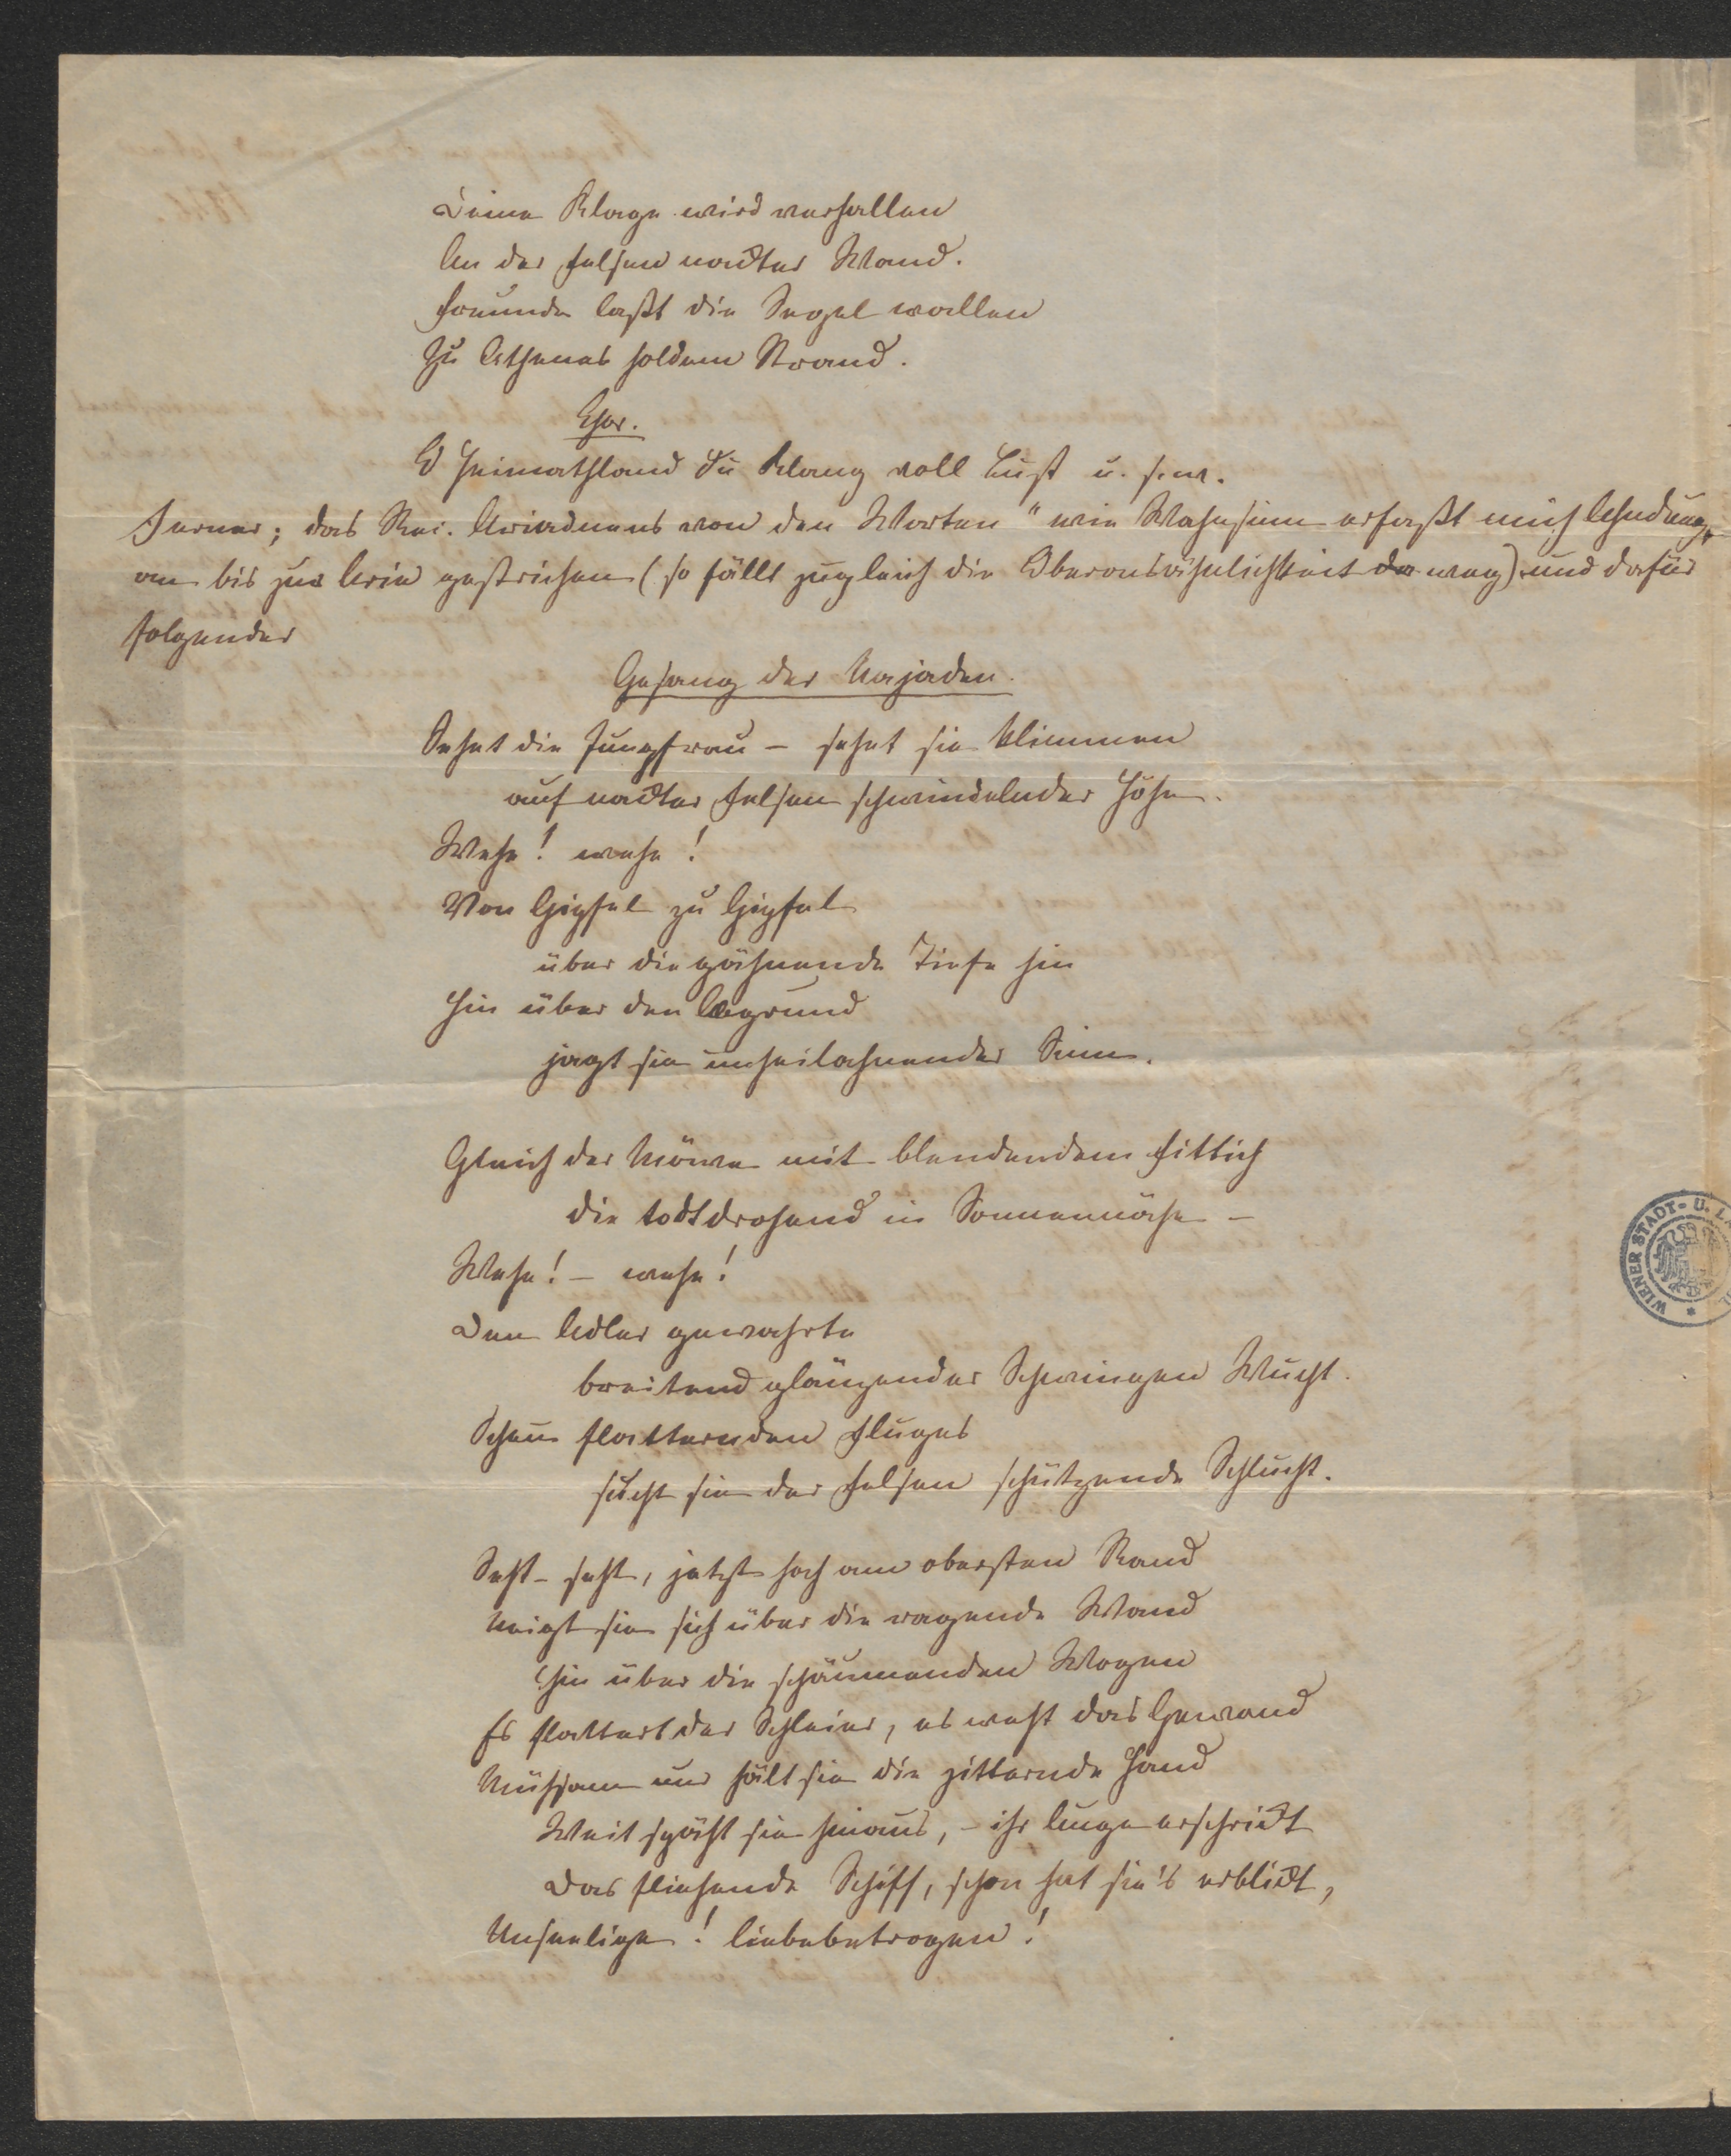 Deine Klage wird verhallen
An der Felsen nackter Wand.
Freunde laßt die Segel wallen
Zu Athenas holdem Strand.
Chor.
O Heimathland du Klang voll Lust u. s. w.
Ferner; das Rec. Ariadnens von den Worten "wie Wahnsinn erfaßt mich Ahndung"
an bis zur Aria gestrichen (so fällt zugleich die Oberonsähnlichkeit da weg) und dafür
folgender
Gesang der Najaden.
Sehet die Jungfrau – sehet sie klimmen
auf nackter Felsen schwindelnder Höhe.
Wehe! wehe!
Von Gipfel zu Gipfel
über die gähnende Tiefe hin
Hin über den Abgrund
jagt sie unheilahnender Sinn.
Gleich der Möwe mit blendendem Fittich
die todtdrohend in Sonnennähe –
Wehe! – wehe!
Den Adler gewahrte
breitend glänzender Schwingen Wucht.
Scheu flatternden Fluges
sucht sie der Felsen schützende Schlucht.
Seht – seht, jetzt hoch am obersten Rand
Neigt sie sich über die ragende Wand
Hin über die schäumenden Wogen
Es flattert der Schleier, es weht das Gewand
Mühsam nur hält sie die zitternde Hand
Weit späht sie hinaus, – ihr Auge erschrickt
Das fliehende Schiff, schon hat sie's erblickt,
Unseelige! liebebetrogen!
WIENER STADT- U. L